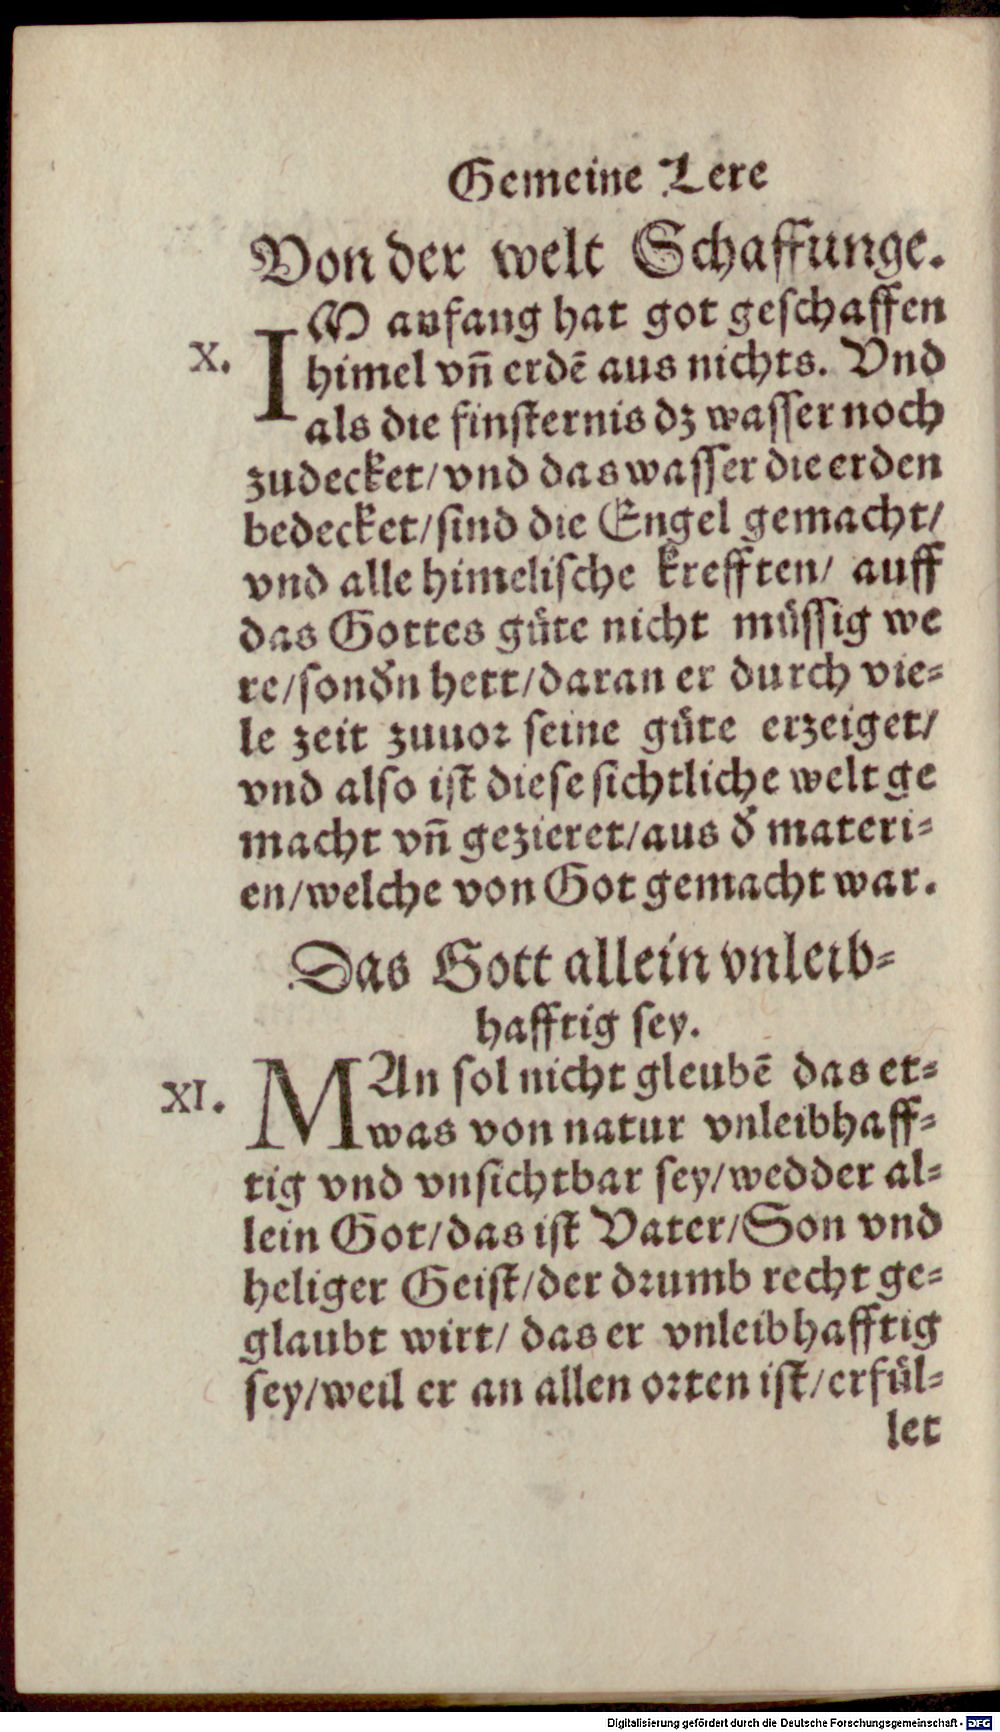 Gemeine Lere
Von der welt Schaffunge.
X. IM anfang hat got geschaffen
himel vñ erdē aus nichts. Vnd
als die finsternis dz wasser noch
zudecket/ vnd das wasser die erden
bedecket/ sind die Engel gemacht/
vnd alle himelische krefften/ auff
das Gottes güte nicht müssig we
re/ sonďn hett/ daran er durch vie=
le zeit zuuor seine güte erzeiget/
vnd also ist diese sichtliche welt ge
macht vñ gezieret/ aus ď materi=
en/ welche von Got gemacht war.
Das Gott allein vnleib=
hafftig sey.
XI. MAn sol nicht gleubē das et=
was von natur vnleibhaff=
tig vnd vnsichtbar sey/ wedder al=
lein Got/ das ist Vater/ Son vnd
heliger Geist/ der drumb recht ge=
glaubt wirt/ das er vnleibhafftig
sey/ weil er an allen orten ist/ erfül=
let
Digitalisierung gefördert durch die Deutsche Forschungsgemeinschaft - DFG